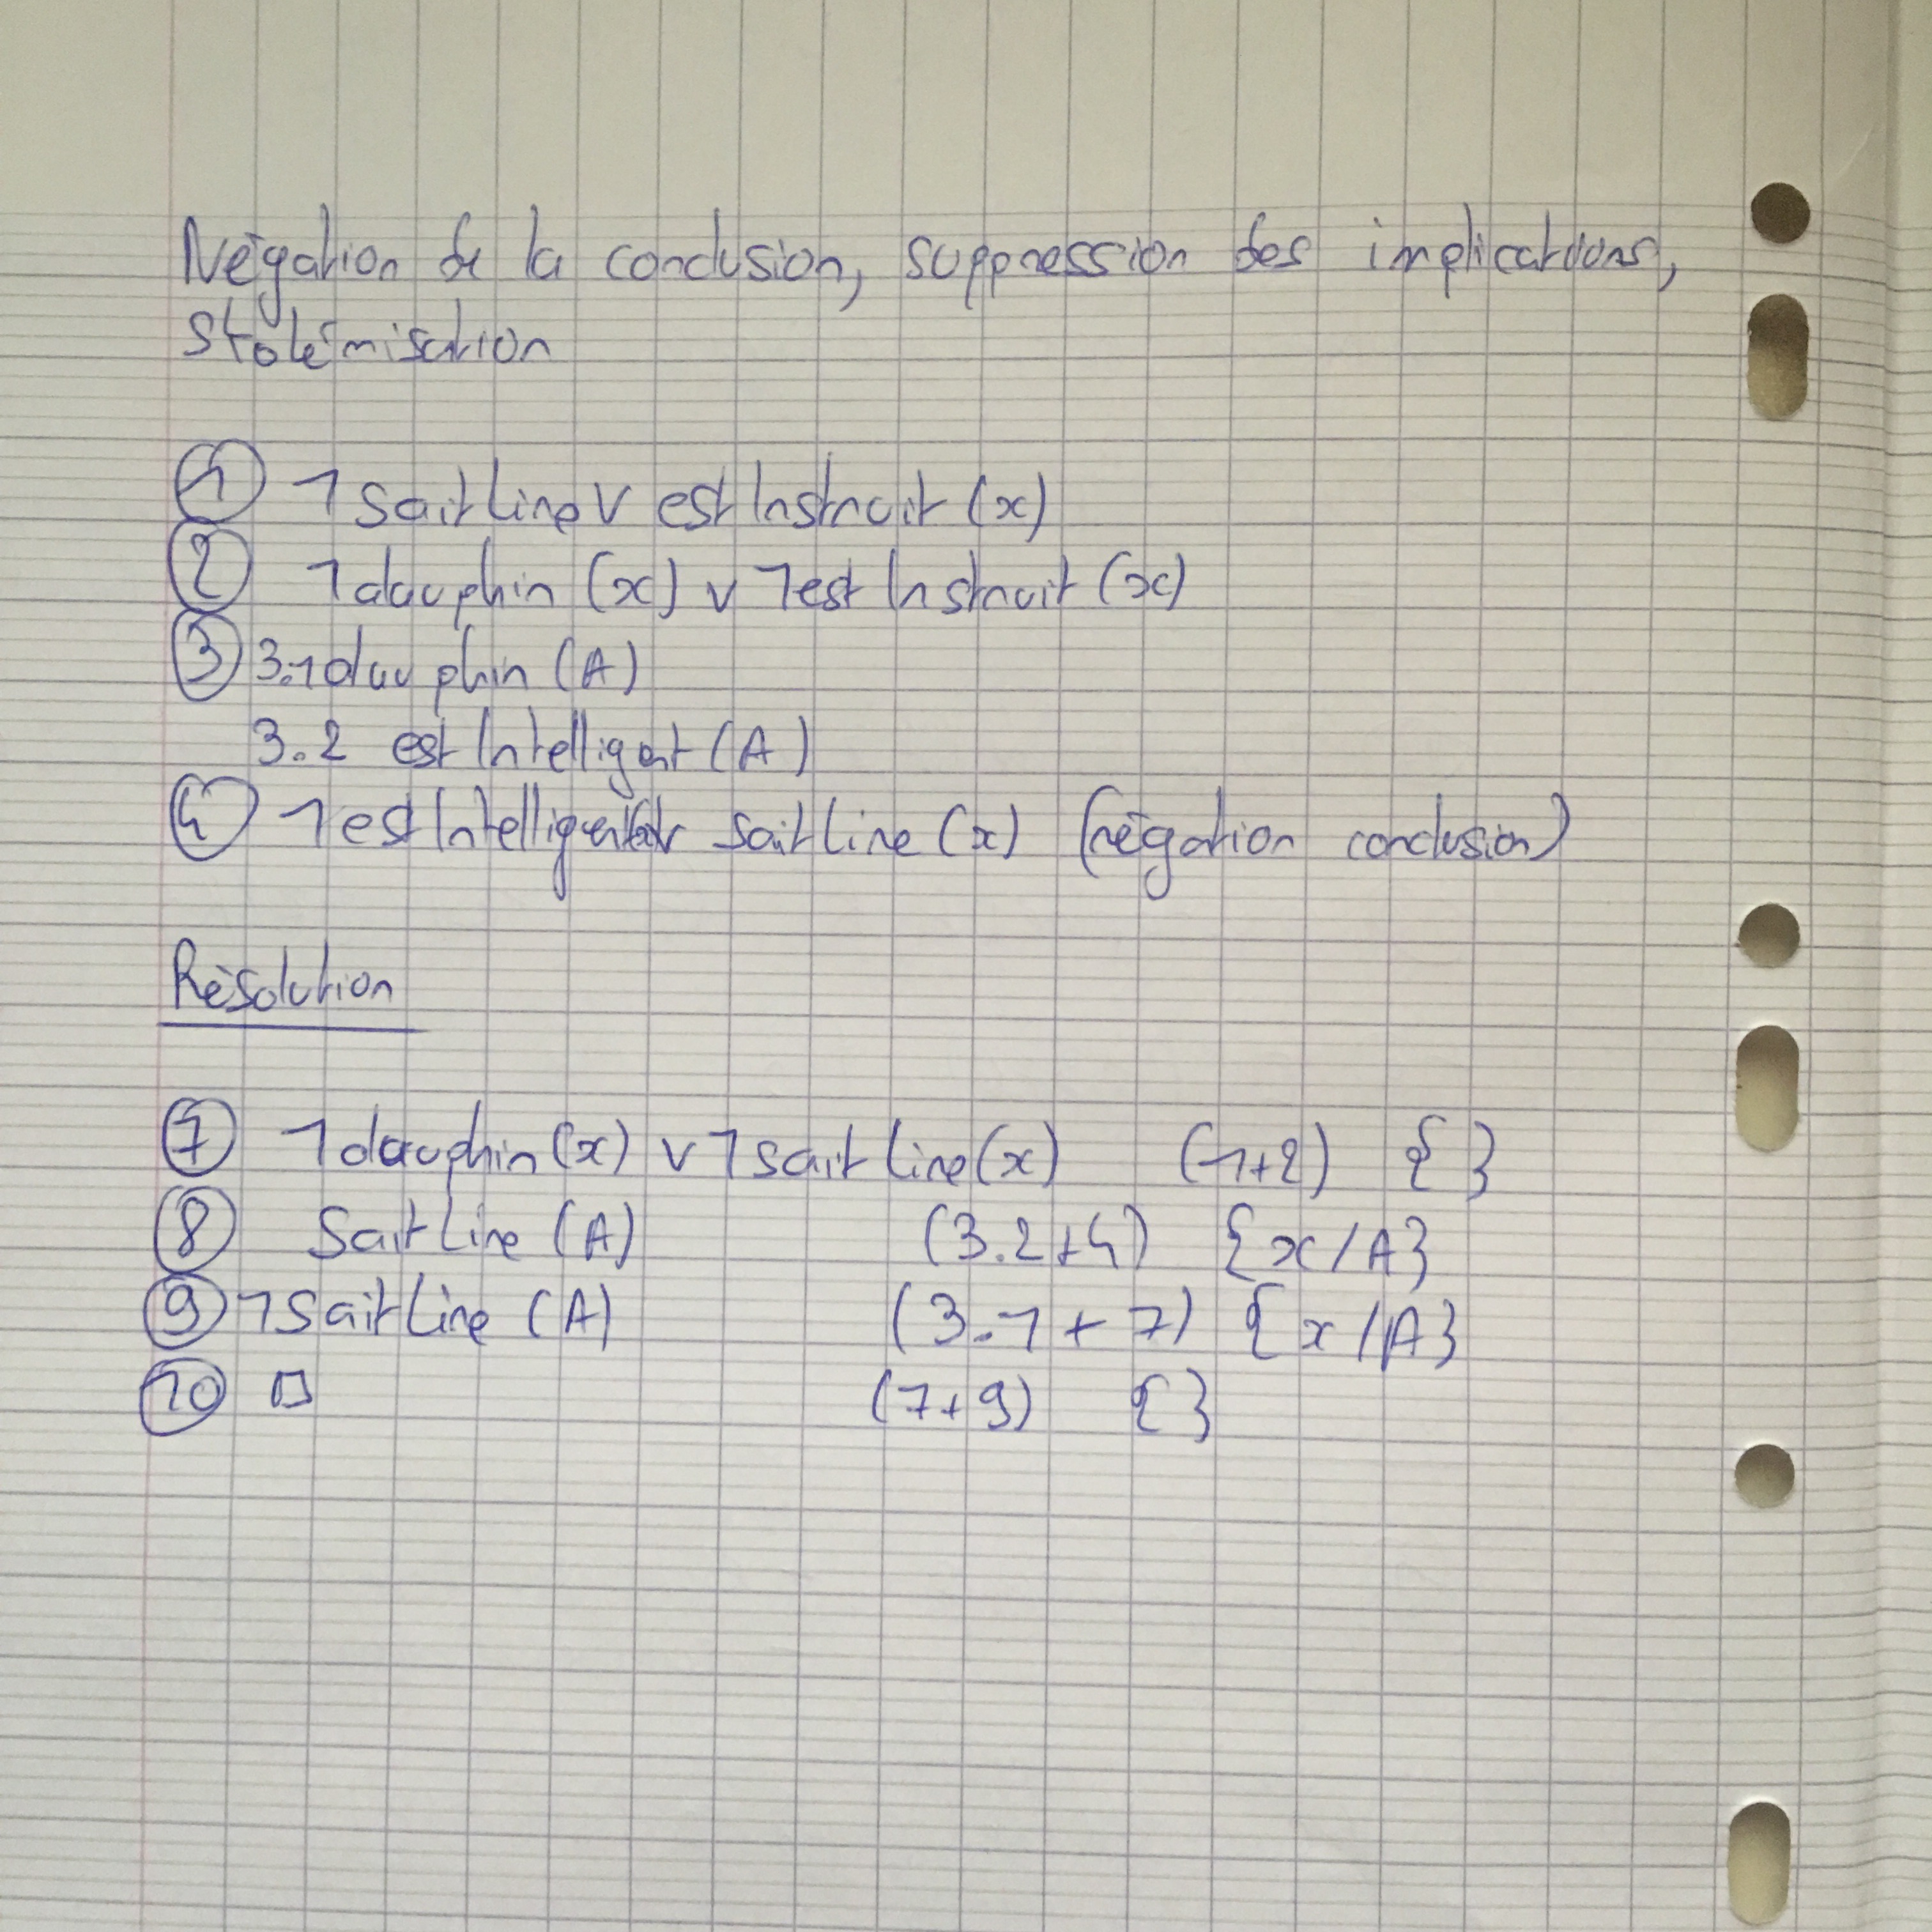 Négation de la conclusion, suppression des implications,
Skolémisation
① ¬ sait Lire ∨ est Instruit (x)
② ¬ dauphin (x) ∨ ¬ est Instruit (x)
③ 3.1 dauphin (A)
3.2 est Intelligent (A)
④ ¬ est Intelligent(x) ∨ sait Lire (x) (négation conclusion)
Résolution
⑦ ¬ dauphin (x) ∨ ¬ sait Lire (x) (1+2) { }
⑧ Sait Lire (A) (3.2+4) {x/A}
⑨ ¬ Sait Lire (A) (3.1 + 7) {x/A}
⑩ □ (7+9) { }